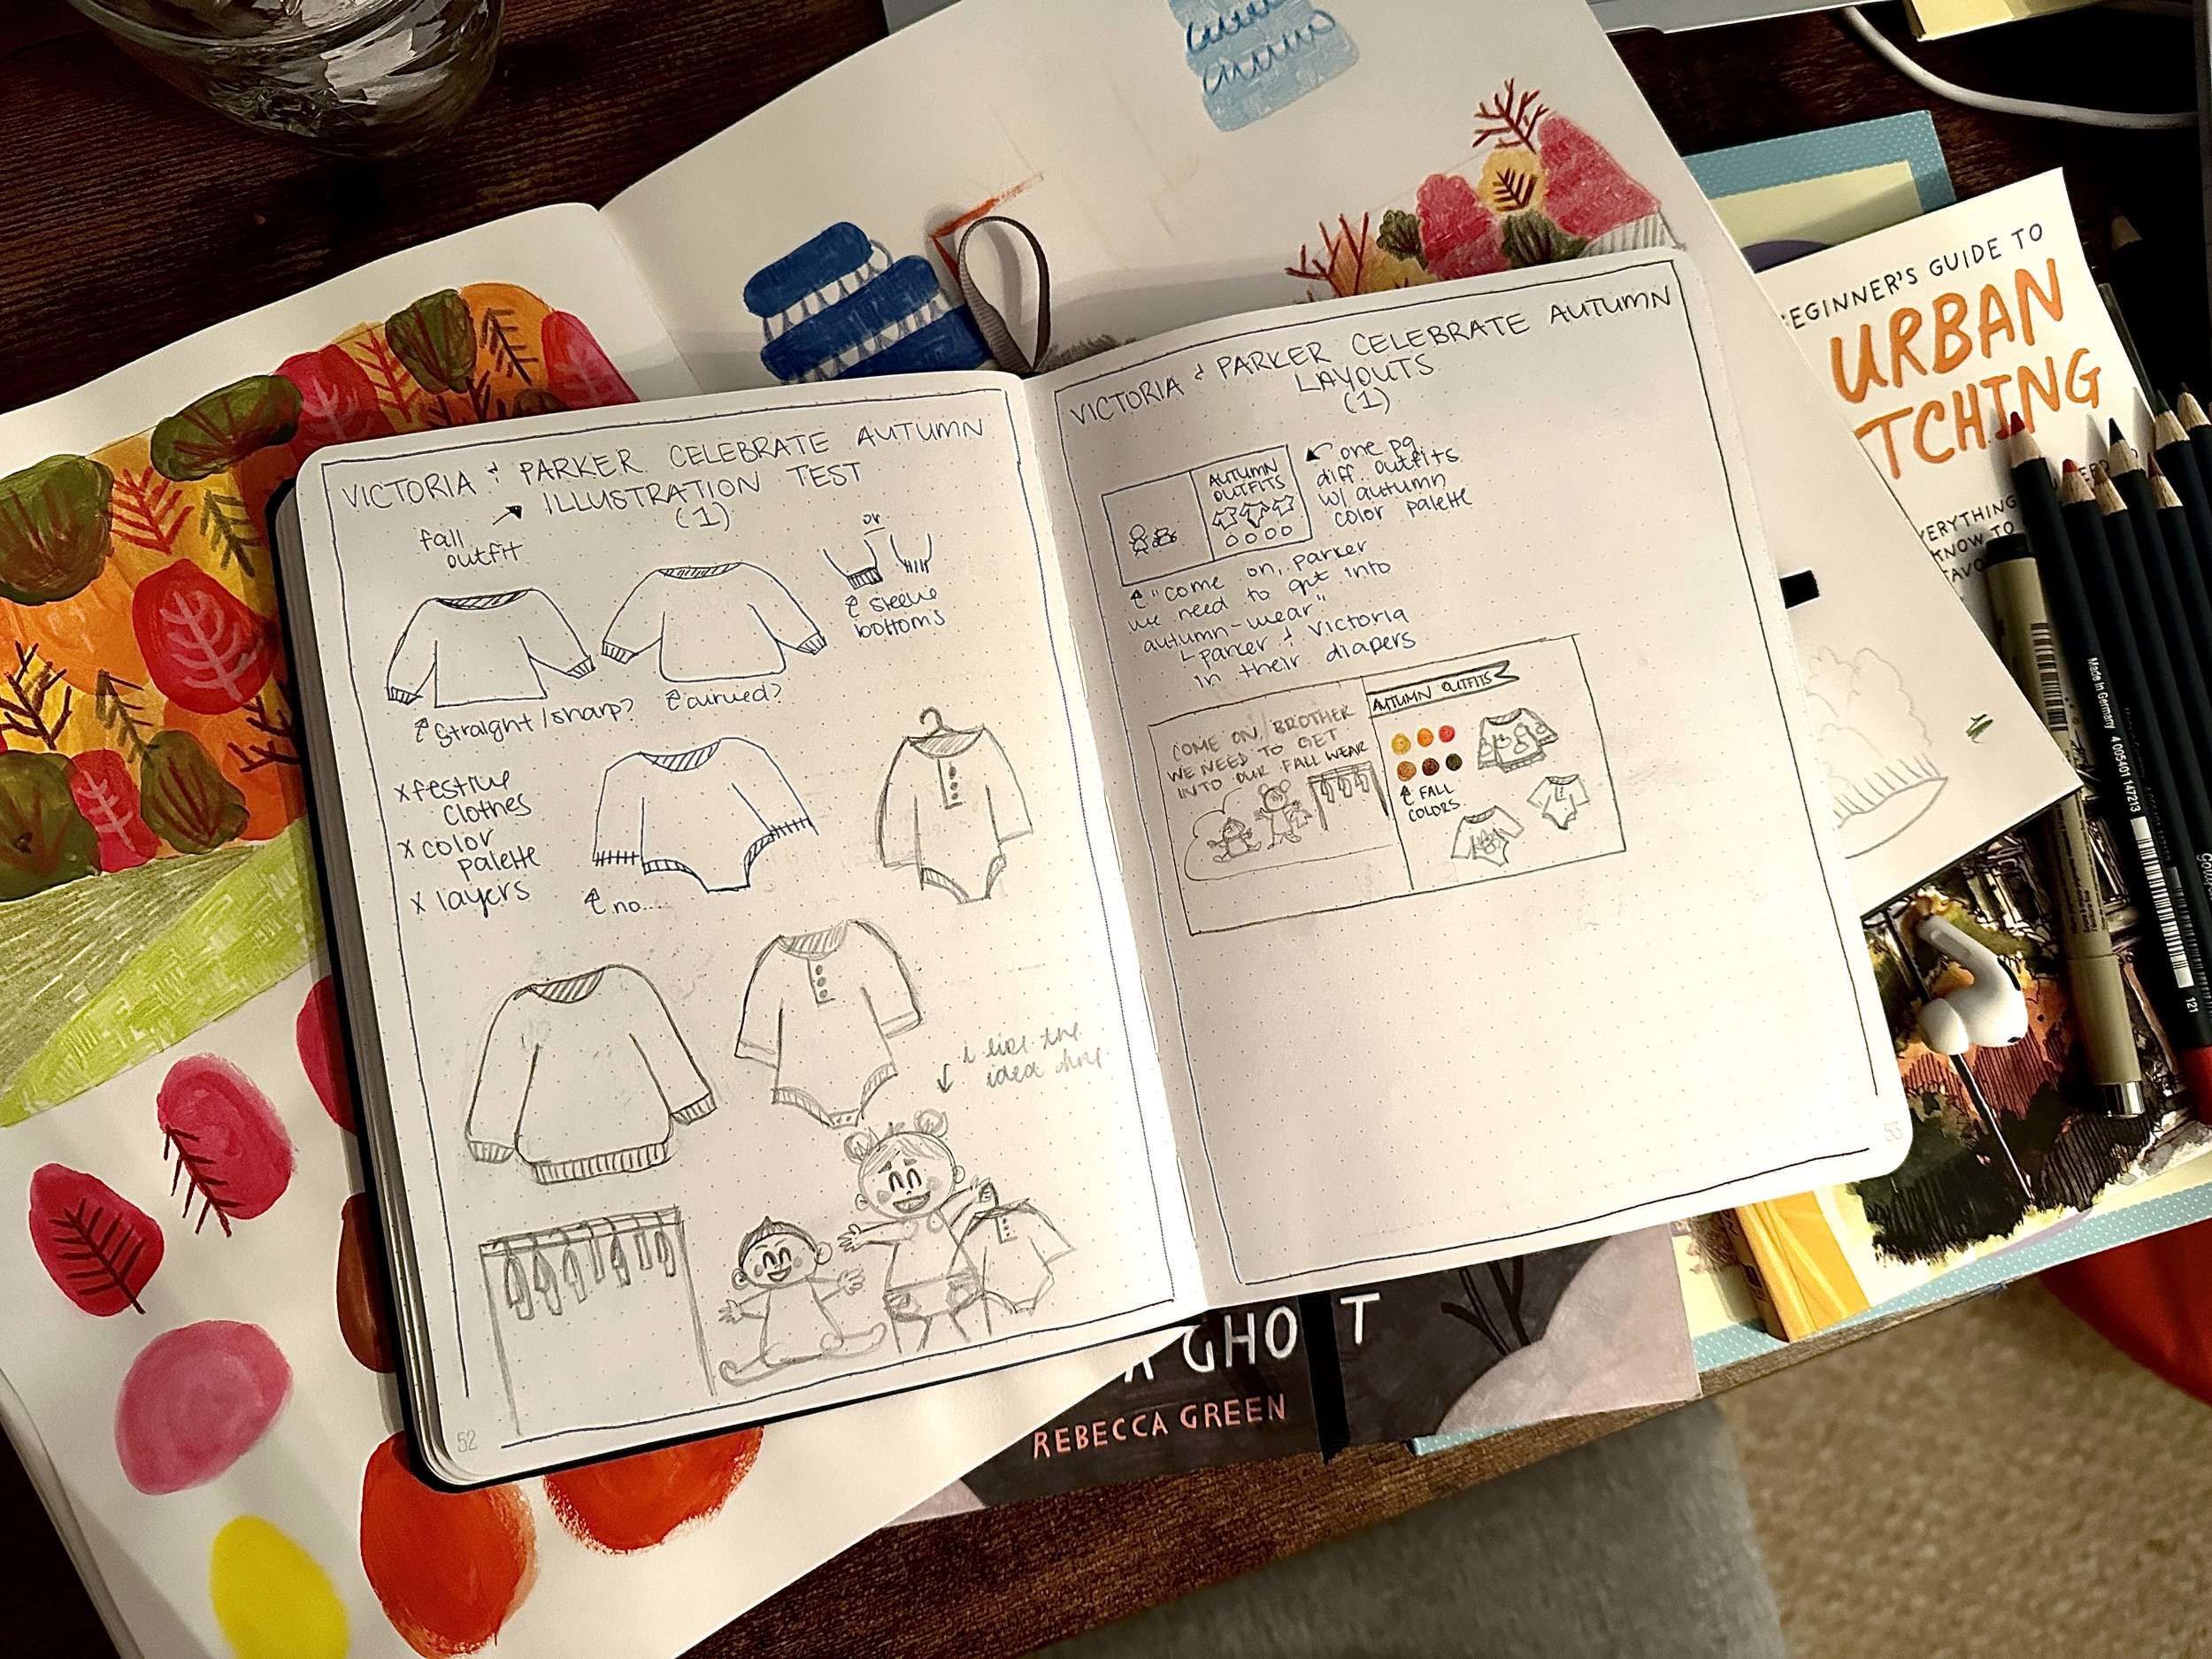 VICTORIA & PARKER CELEBRATE AUTUMN
ILLUSTRATION TEST
(1)
fall
outfit
or
↑ sleeve
bottoms
↑ straight/sharp?
↑ curved?
x festive
clothes
x color
palette
x layers
↑ no....
i like the
idea here
52
VICTORIA & PARKER CELEBRATE AUTUMN
LAYOUTS
(1)
AUTUMN
OUTFITS
one pg
diff. outfits
w/ autumn
color palette
↑ "come on, parker
we need to get into
autumn-wear."
parker & victoria
in their diapers
COME ON, BROTHER
WE NEED TO GET
INTO OUR FALL WEAR
AUTUMN OUTFITS
↑ FALL
COLORS
53
BEGINNER'S GUIDE TO
URBAN
TCHING
VERYTHING
KNOW TO
FAVO
Made in Germany
4 005401 147213
121
GHO T
REBECCA GREEN